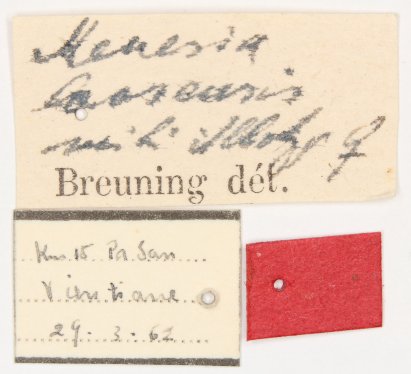 Menesia
laosensis
mihi Alloty ♀
Breuning dét.
Km 15 Pa San
Vientiane
29-3-62